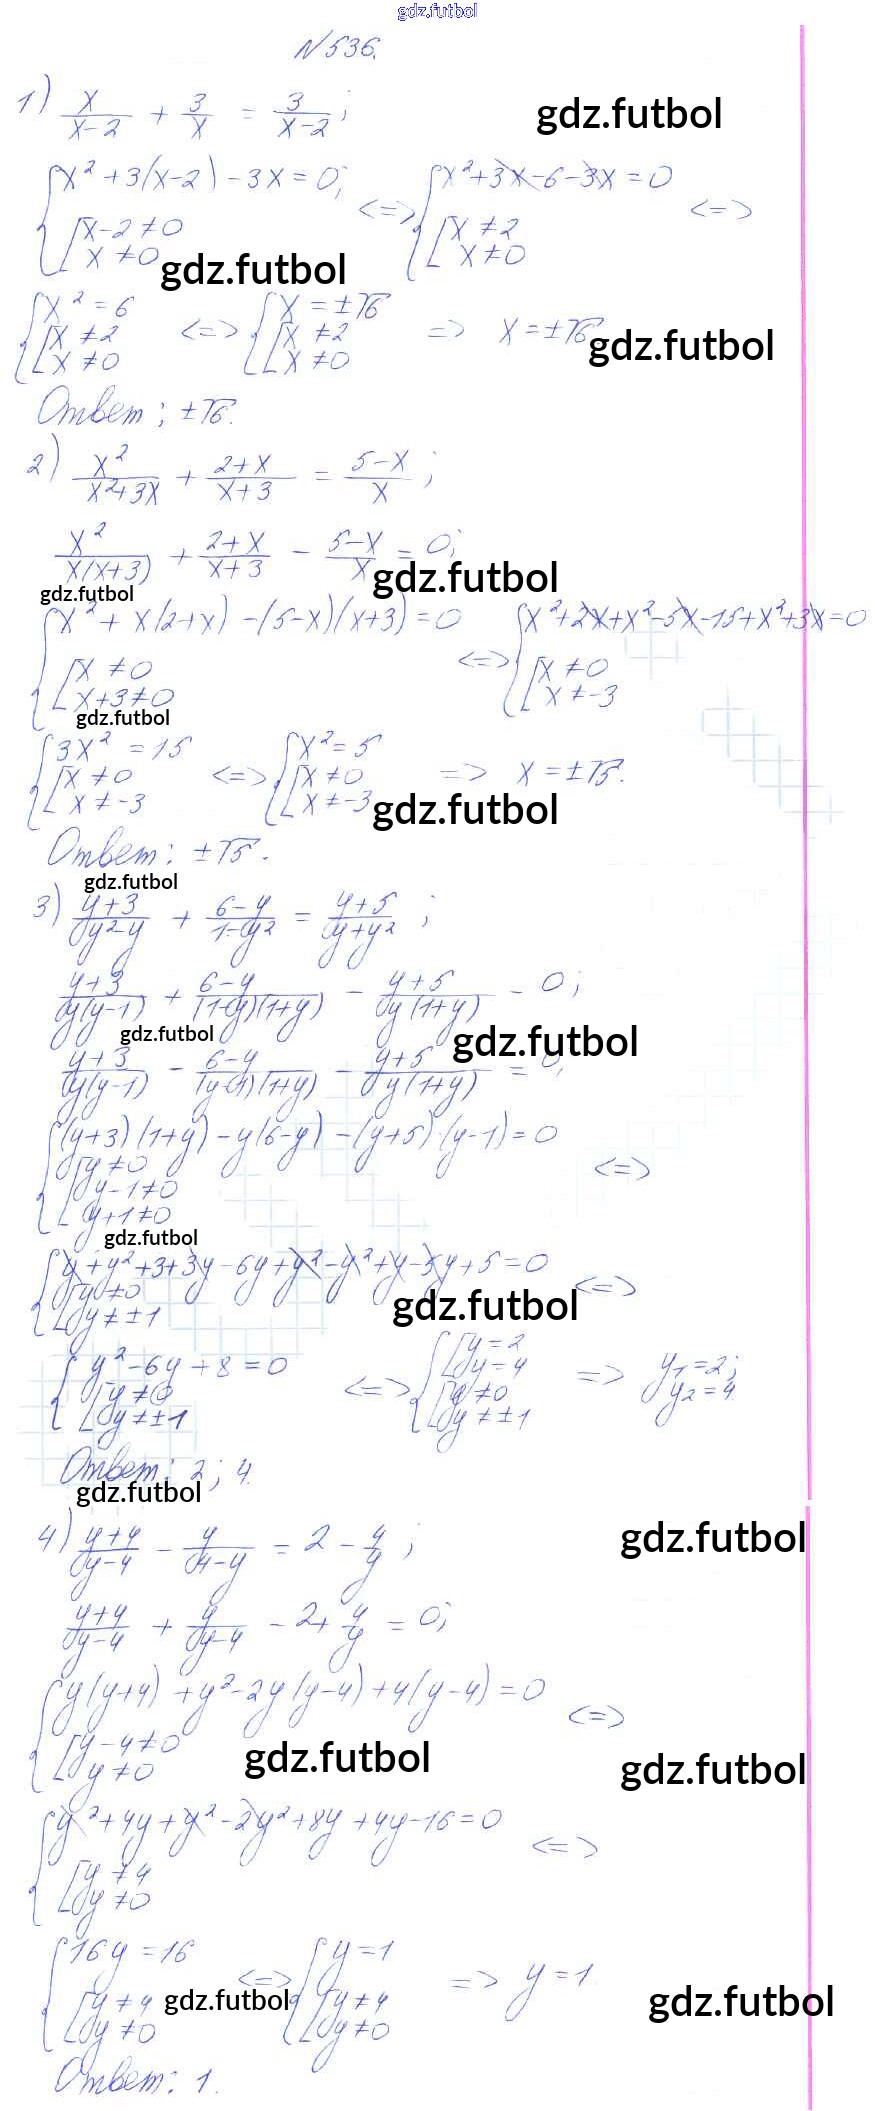 gdz.futbol
N 536.
1) x/(x-2) + 3/x = 3/(x-2);
gdz.futbol
{x² + 3(x-2) - 3x = 0; [x-2 ≠ 0 x ≠ 0 <=> {x² + 3x - 6 - 3x = 0 [x ≠ 2 x ≠ 0 <=>
gdz.futbol
{x² = 6 [x ≠ 2 x ≠ 0 <=> {x = ±√6 [x ≠ 2 x ≠ 0 => x = ±√6
gdz.futbol
Ответ; ±√6.
2) x²/(x²+3x) + (2+x)/(x+3) = (5-x)/x;
x²/(x(x+3)) + (2+x)/(x+3) - (5-x)/x = 0;
gdz.futbol
gdz.futbol
{x² + x(2+x) - (5-x)(x+3) = 0 [x ≠ 0 x+3 ≠ 0 <=> {x² + 2x + x² - 5x - 15 + x² + 3x = 0 [x ≠ 0 x ≠ -3
gdz.futbol
{3x² = 15 [x ≠ 0 x ≠ -3 <=> {x² = 5 [x ≠ 0 x ≠ -3 => x = ±√5.
gdz.futbol
Ответ: ±√5.
gdz.futbol
3) (y+3)/(y²-y) + (6-y)/(1-y²) = (y+5)/(y+y²);
(y+3)/(y(y-1)) + (6-y)/((1-y)(1+y)) - (y+5)/(y(1+y)) - 0;
gdz.futbol
gdz.futbol
(y+3)/(y(y-1)) - (6-y)/((y-1)(1+y)) - (y+5)/(y(1+y)) = 0;
{(y+3)(1+y) - y(6-y) - (y+5)(y-1) = 0 [y ≠ 0 y-1 ≠ 0 y+1 ≠ 0 <=>
gdz.futbol
{y + y² + 3 + 3y - 6y + y² - y² + y - 5y + 5 = 0 [y ≠ 0 y ≠ ±1 <=>
gdz.futbol
{y² - 6y + 8 = 0 [y ≠ 0 y ≠ ±1 <=> {[y = 2 y = 4 [y ≠ 0 y ≠ ±1 => y₁ = 2; y₂ = 4.
Ответ: 2; 4.
gdz.futbol
4) (y+4)/(y-4) - y/(4-y) = 2 - 4/y;
gdz.futbol
(y+4)/(y-4) + y/(y-4) - 2 + 4/y = 0;
{y(y+4) + y² - 2y(y-4) + 4(y-4) = 0 [y-4 ≠ 0 y ≠ 0 <=>
gdz.futbol
gdz.futbol
{y² + 4y + y² - 2y² + 8y + 4y - 16 = 0 [y ≠ 4 y ≠ 0 <=>
{16y = 16 [y ≠ 4 y ≠ 0 <=> {y = 1 [y ≠ 4 y ≠ 0 => y = 1.
gdz.futbol
gdz.futbol
Ответ: 1.